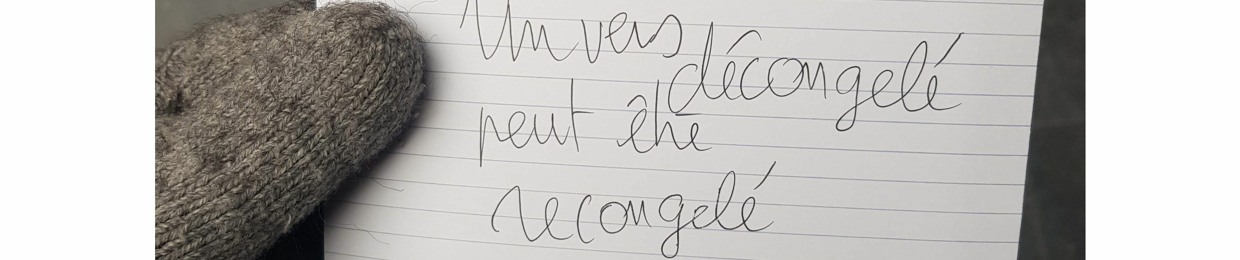 Un vers décongelé
peut être
recongelé